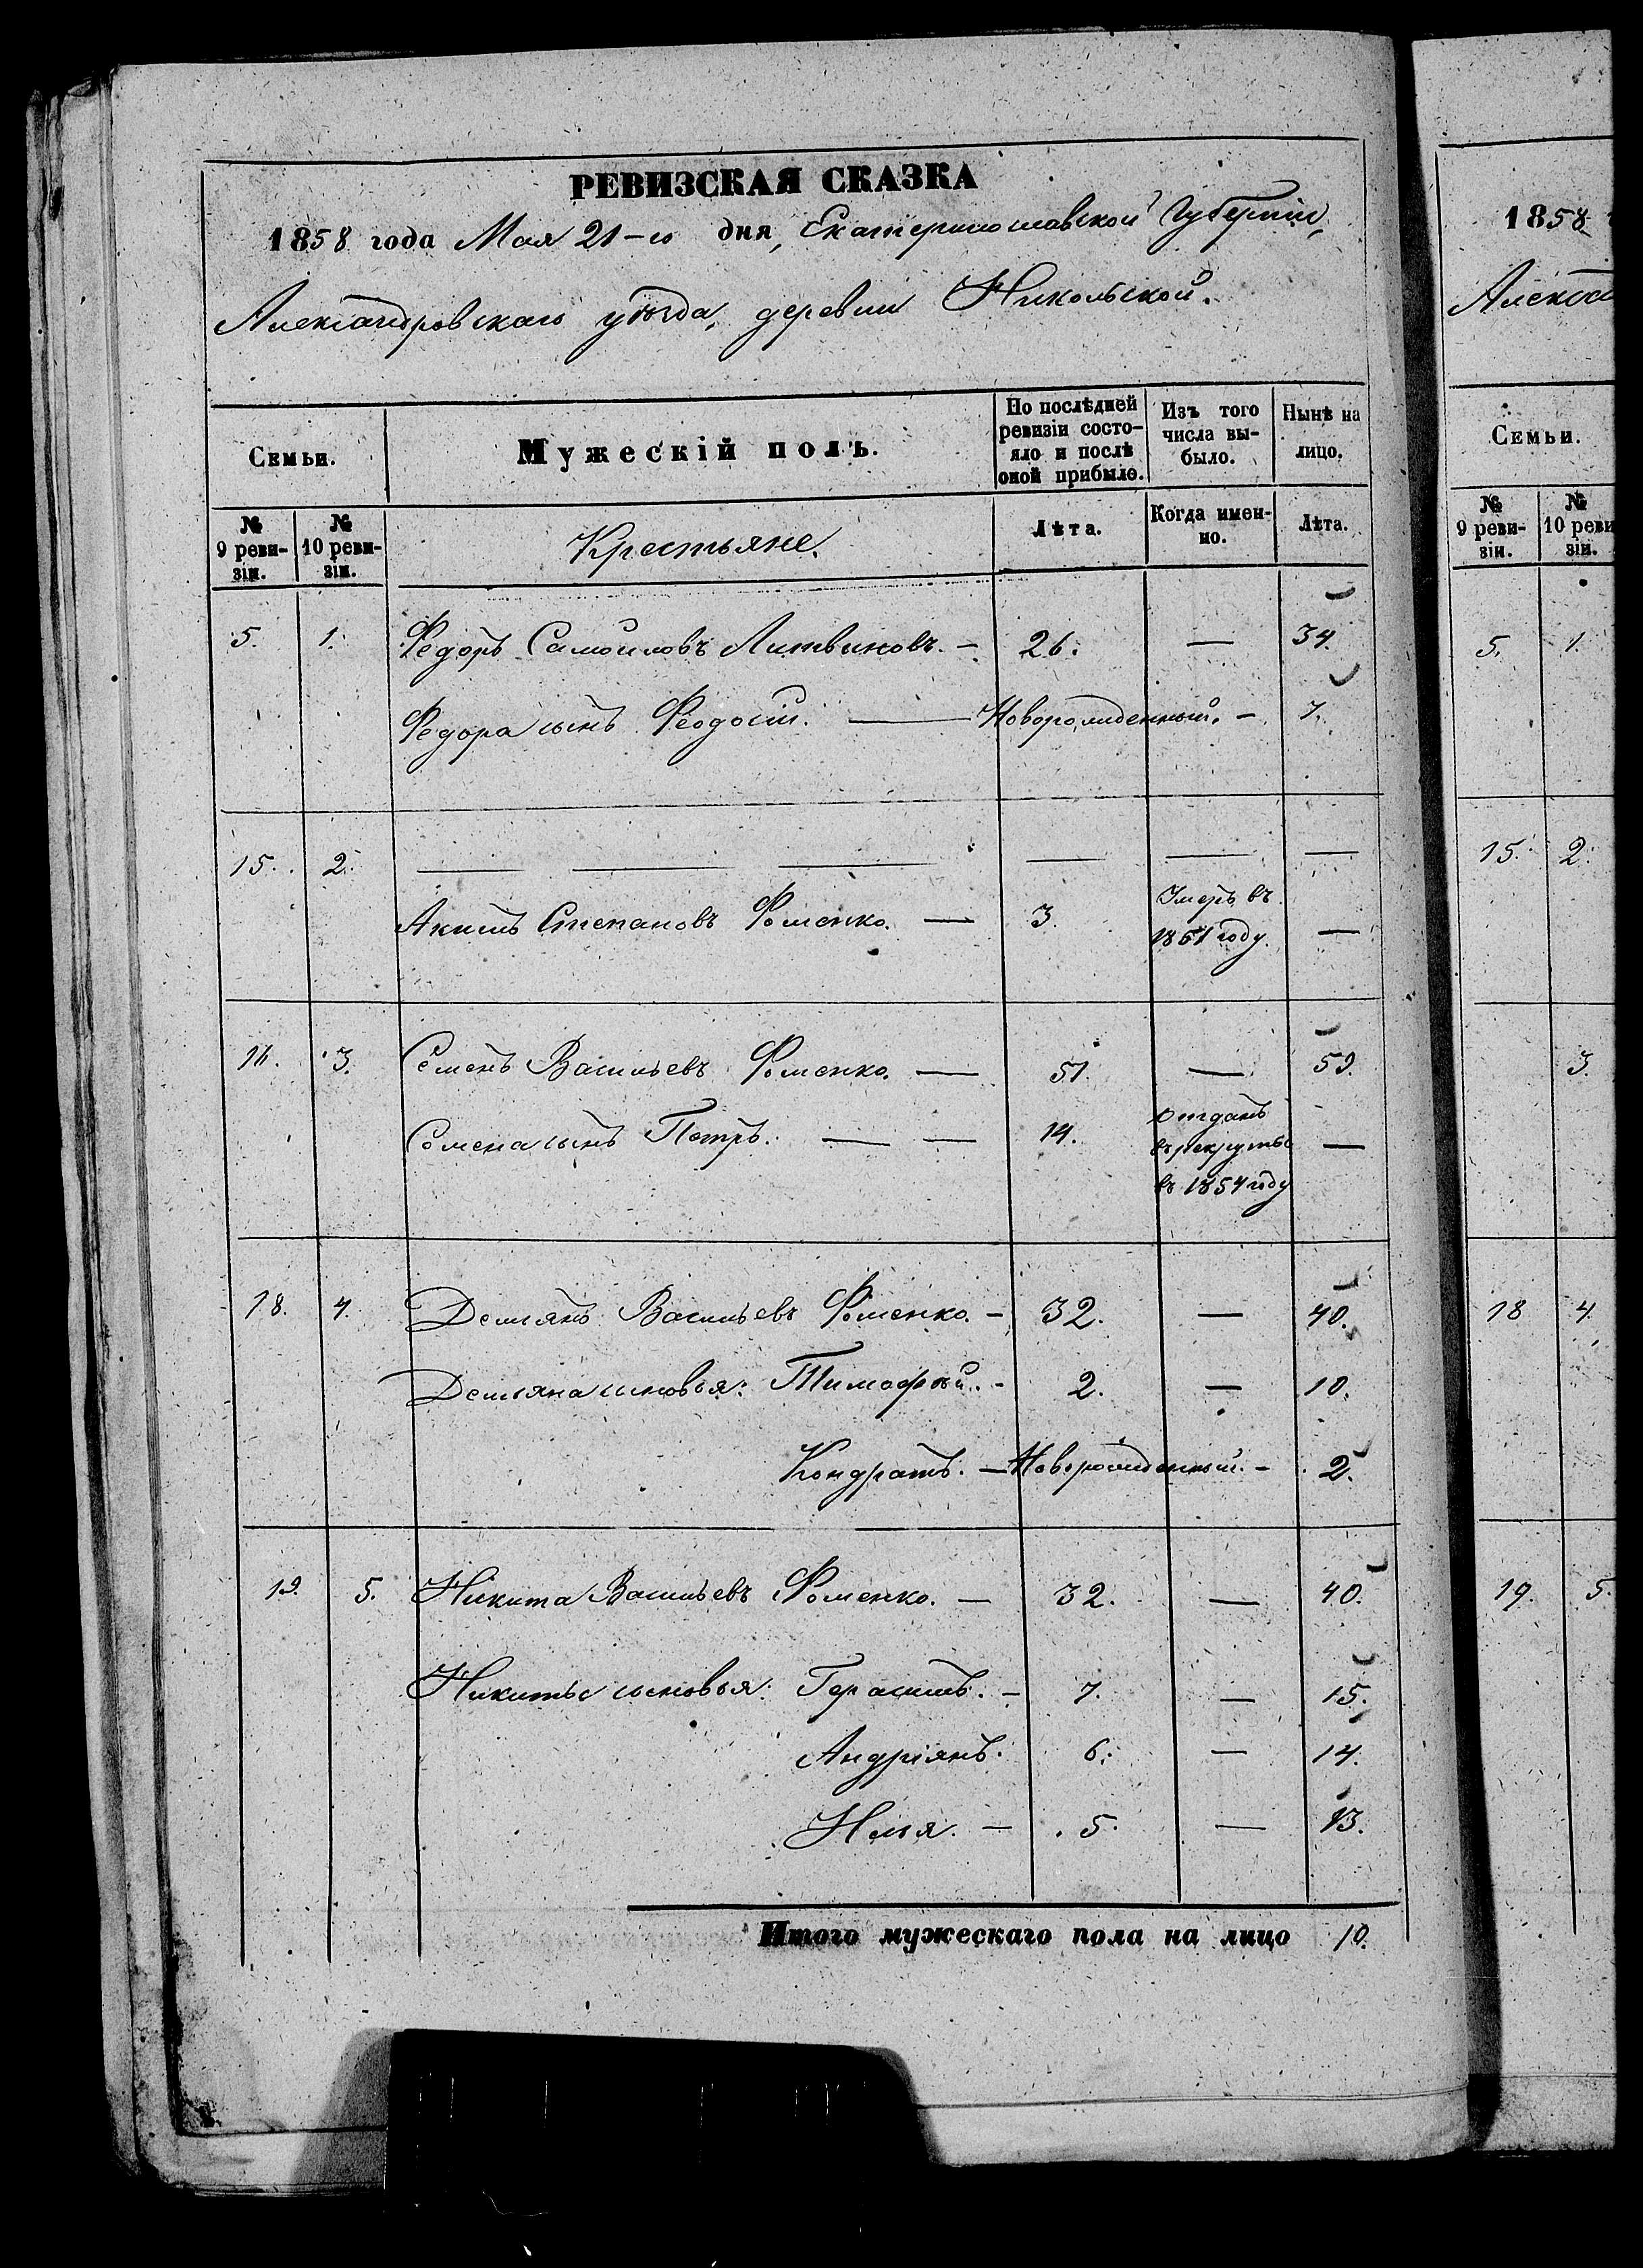 РЕВИЗСКАЯ СКАЗКА
1858 года Мая 21-го дня, Екатеринославской Губерніи,
Александровскаго уѣзда, деревни Никольской.
Семьи.
Мужескій полъ.
По послѣдней ревизіи состояло и послѣ оной прибыло.
Изъ того числа выбыло.
Нынѣ на лицо.
№ 9 ревизіи.
№ 10 ревизіи.
Крестьяне.
Лѣта.
Когда именно.
Лѣта.
5. 1. Федоръ Самойловъ Литвиновъ. — 26. — 34.
Федора сынъ Феодосій. — Новорожденный. — 7.
15. 2. — — — — — —
Акимъ Степановъ Фоменко. — 3. Умеръ въ 1851 году. —
16. 3. Семенъ Васильевъ Фоменко. — 51. — 59.
Семена сынъ Петръ. — — 14. Отданъ въ рекруты въ 1854 году —
18. 4. Демьянъ Васильевъ Фоменко. — 32. — 40.
Демьяна сыновья: Тимофѣй. — 2. — 10.
Кондратъ. — Новорожденный. — 2.
19. 5. Никита Васильевъ Фоменко. — 32. — 40.
Никиты сыновья: Герасимъ. — 7. — 15.
Андріянъ. 6. — 14.
Илья. — 5. — 13.
Итого мужескаго пола на лицо 10.
1858
Семьи.
№ 9 ревизіи.
№ 10 реви зіи.
5. 1.
15. 2.
3.
18 4.
19. 5.